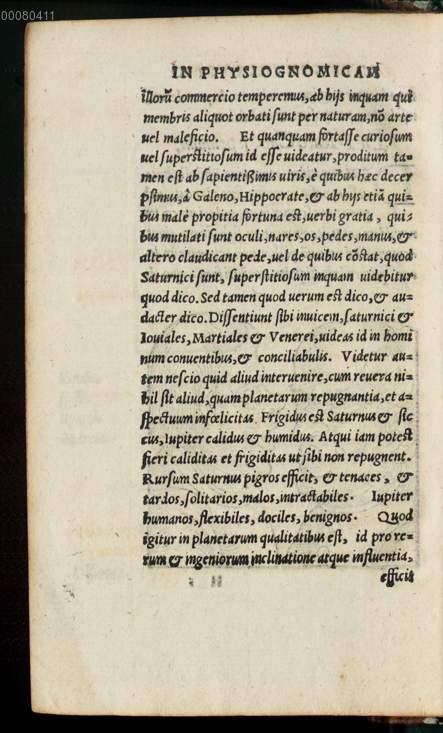 00080411
IN PHYSIOGNOMICAM
illorũ commercio temperemus, ab hijs inquam qui
membris aliquot orbati sunt per naturam, nõ arte
uel maleficio. Et quanquam fortasse curiosum
uel superstitiosum id esse uideatur, proditum ta=
men est ab sapientißimis uiris, è quibus hæc decer
psimus, à Galeno, Hippocrate, & ab hys etiã qui=
bus malè propitia fortuna est, uerbi gratia, qui=
bus mutilati sunt oculi, nares, os, pedes, manus, &
altero claudicant pede, uel de quibus cõstat, quod
Saturnici sunt, superstitiosum inquam uidebitur
quod dico. Sed tamen quod uerum est dico, & au=
dacter dico. Dissentiunt sibi inuicem, saturnici &
Iouiales, Martiales & Venerei, uideas id in homi
num conuentibus, & conciliabulis. Videtur au=
tem nescio quid aliud interuenire, cum reuera ni=
hil sit aliud, quam planetarum repugnantia, et a=
spectuum infœlicitas. Frigidus est Saturnus & sic
cus, Iupiter calidus & humidus. Atqui iam potest
fieri caliditas et frigiditas ut sibi non repugnent.
Rursum Saturnus pigros efficit, & tenaces, &
tardos, solitarios, malos, intractabiles. Iupiter
humanos, flexibiles, dociles, benignos. Quod
igitur in planetarum qualitatibus est, id pro re=
rum & ingeniorum inclinatione atque influentia,
efficit